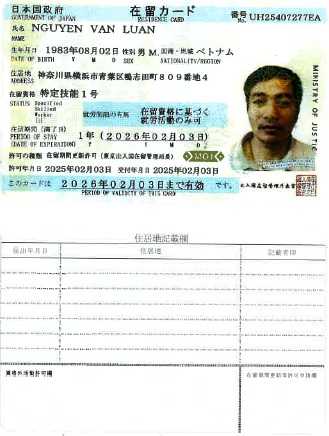 日本国政府 在留カード 番号 UH25407277EA
GOVERNMENT OF JAPAN RESIDENCE CARD No.
氏名 NGUYEN VAN LUAN
NAME
生年月日 1983年08月02日 性別 男 M. 国籍・地域 ベトナム
DATE OF BIRTH Y M D SEX NATIONALITY/REGION
住居地 神奈川県横浜市青葉区鴨志田町809番地4
ADDRESS
在留資格 特定技能1号
STATUS Specified
Skilled
Worker
(i)
就労制限の有無 在留資格に基づく
就労活動のみ可
在留期間(満了日) 1年(2026年02月03日)
PERIOD OF STAY
(DATE OF EXPIRATION) Y M D
許可の種類 在留期間更新許可(東京出入国在留管理局長)
MOJ
許可年月日 2025年02月03日 交付年月日 2025年02月03日
このカードは 2026年02月03日まで有効 です。
PERIOD OF VALIDITY OF THIS CARD
MINISTRY OF JUSTICE
住居地記載欄
届出年月日 住居地 記載者印
資格外活動許可欄 在留期間更新等許可申請欄